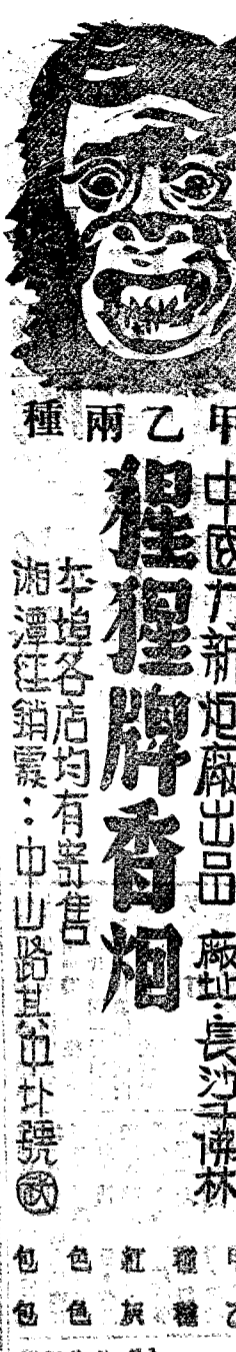 甲乙兩種
中國九新炮廠出品 廠址·長沙千佛林
猩猩牌香炮
本埠各店均有寄售
湘潭經銷處：中山路其中廿號
甲種紅色包
乙種灰色包